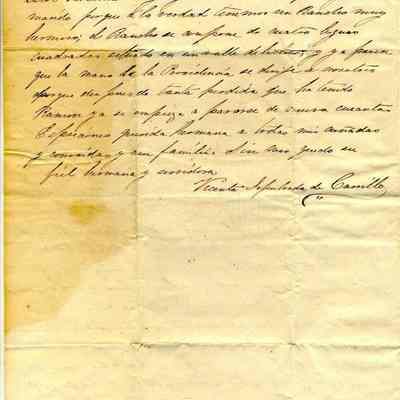 mando porque a la verdad tenemos un Rancho muy
hermoso; el Rancho se compone de cuatro leguas
cuadradas situado en un valle delicioso, y ya parece
que la mano de la Providencia se dirije a nosotros
porque despues de tanta perdida que ha tenido
Ramon ya se empieza a pararse de nueva cuenta
Esperamos querida hermana a todas mis cuñadas
y conocidas y a su familia. Sin mas quedo su
fiel hermana y servidora
Vicenta Sepulveda de Carrillo